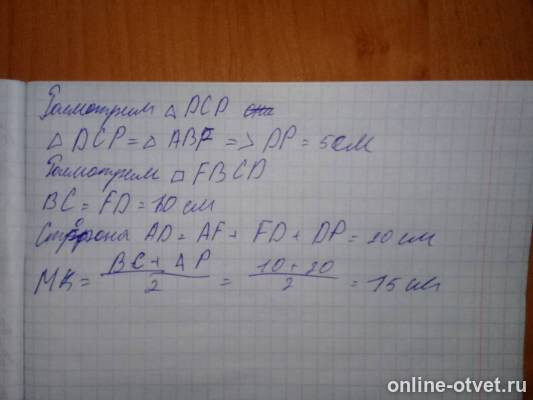 Расмотрим △ DCP
△ DCP = △ ABF => DP = 5см
Расмотрим □ FBCD
BC = FD = 10 см
Сторона AD = AF + FD + DP = 20 см
MK = BC + AP / 2 = 10 + 20 / 2 = 15 см
online-otvet.ru